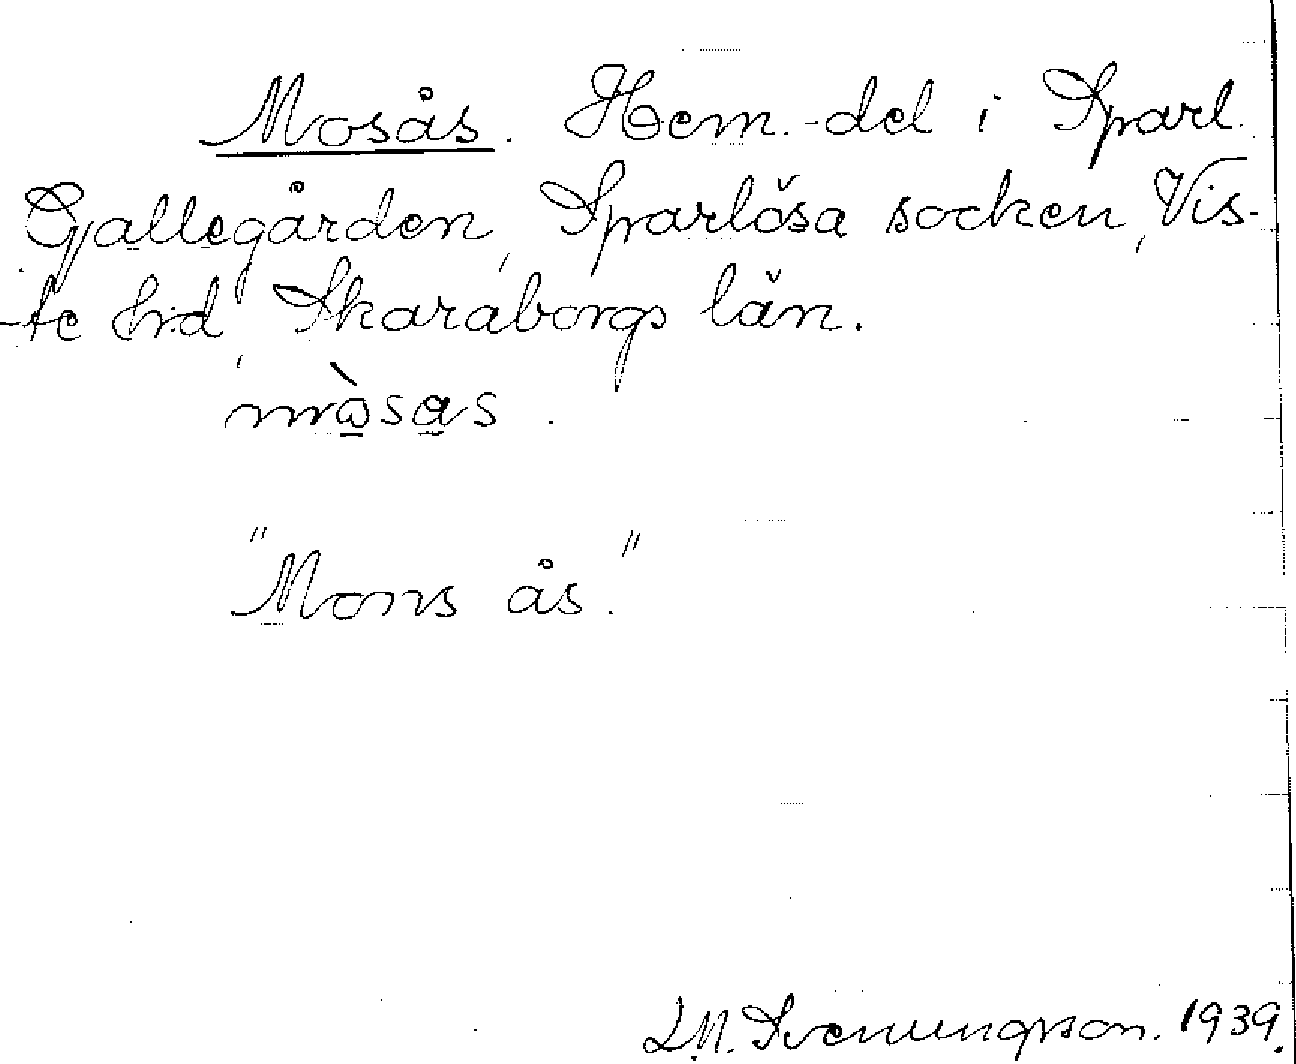 Mosås. Hem.-del i Sparl.
Gallegården, Sparlösa socken, Vis-
-te hrd, Skaraborgs län.
mò̱sa̱s.
"Mons ås."
L.M. Svenungson. 1939.